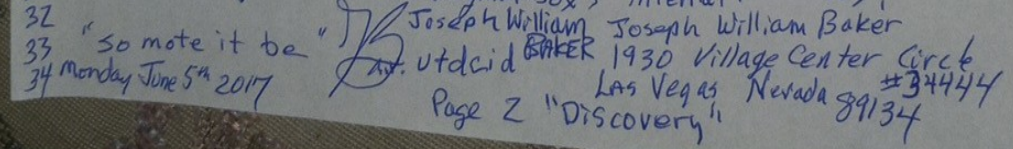 32
33 "so mote it be"
34 Monday June 5th 2017
Joseph William
BAKER
utdcid
Joseph William Baker
1930 Village Center Circle
#34444
Las Vegas Nevada 89134
Page 2 "Discovery"